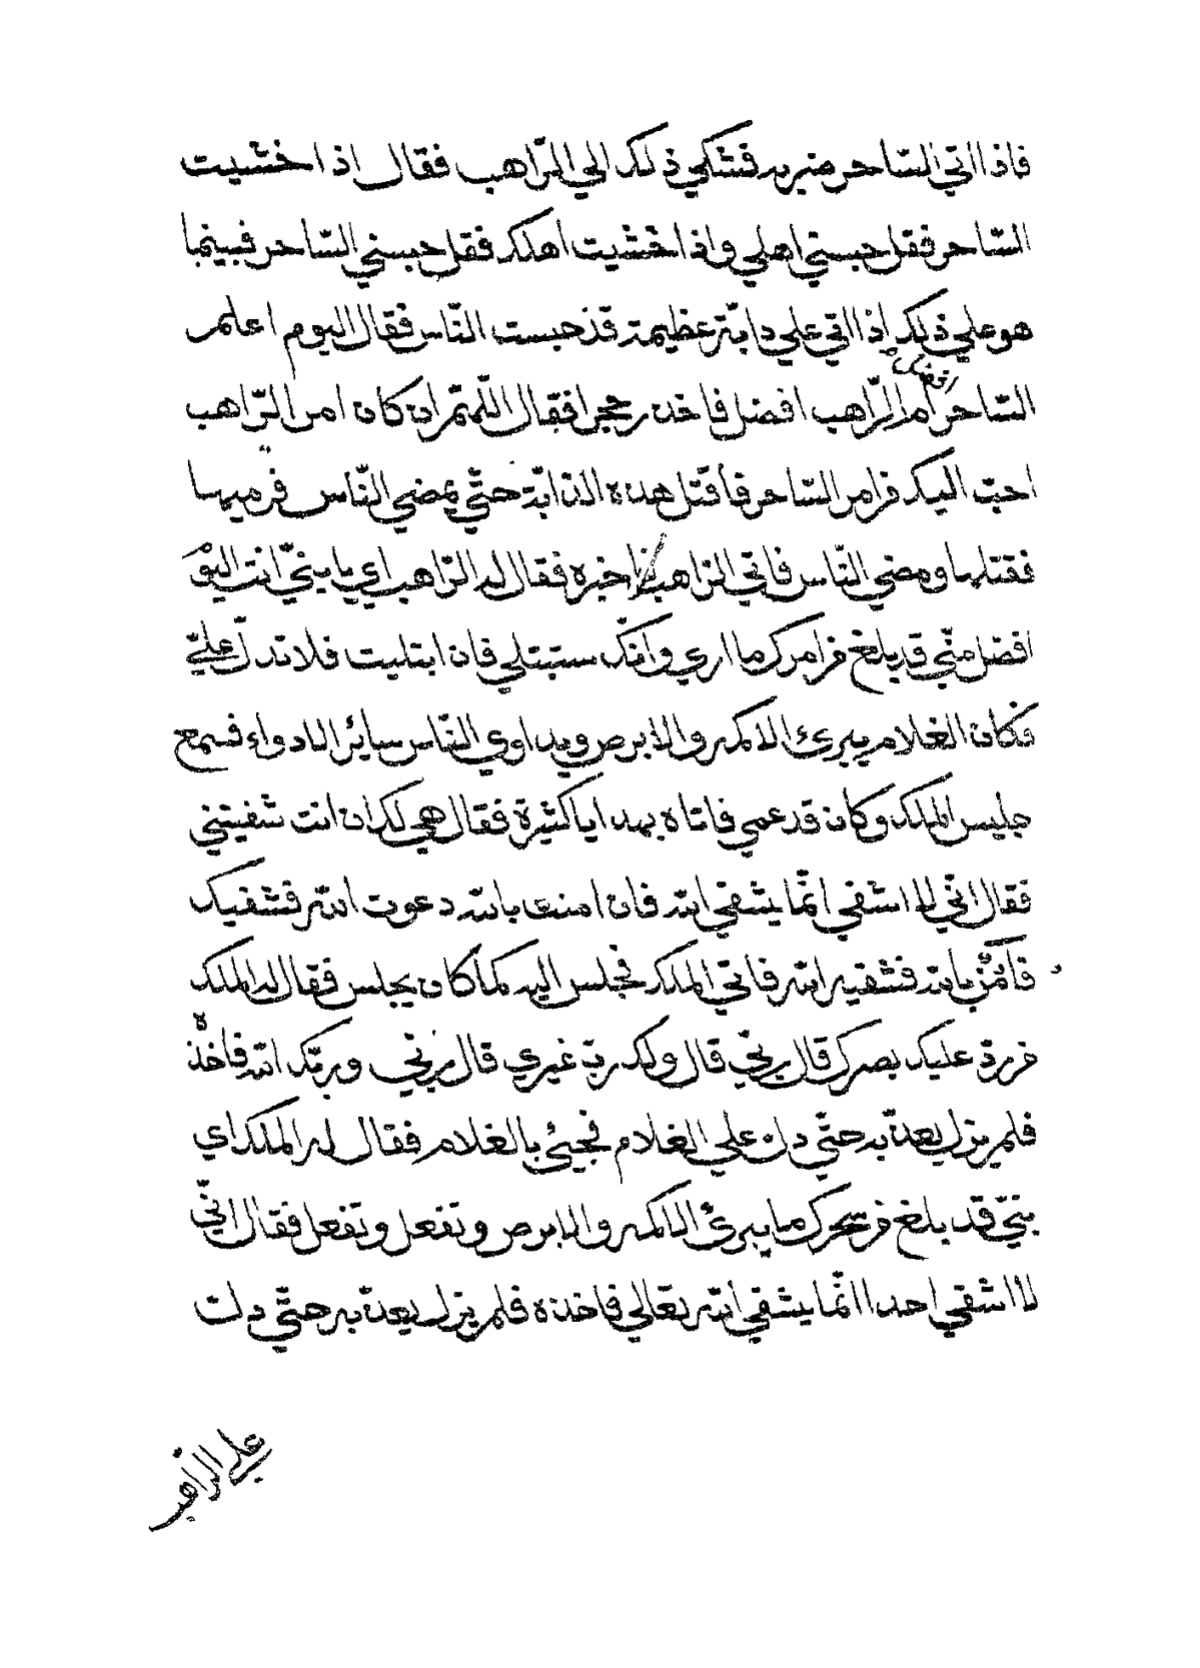 فاذا اتي السّاحر ضربه فشكي ذلك الي الرّاهب فقال اذا خشيت
السّاحر فقل حبسني اهلي واذا خشيت اهلك فقل حبسني السّاحر فبينما
هو علي ذلك اذا اتي علي دابّة عظيمة قد حبست النّاس فقال اليوم اعلم
السّاحر افضل ام الرّاهب افضل فاخذ حجرا فقال اللّهمّ ان كان امر الرّاهب
احبّ اليك من امر السّاحر فاقتل هذه الدابّة حتّي يمضي النّاس فرميها
فقتلها ومضي النّاس فاتي الرّاهب فاخبره فقال له الرّاهب اي يا بنيّ انت اليوم
افضل منّي قد بلغ من امرك ما اري وانّك ستبتلي فان ابتليت فلا تدلّ عليّ
فكان الغلام يبرئ الاكمه والابرص ويداوي النّاس سائر الادواء فسمع
جليس الملك وكان قد عمي فاتاه بهدايا كثيرة فقال هي لك ان انت شفيتني
فقال انّي لا اشفي انّما يشفي الله فان امنت بالله دعوت الله فشفيك
فآمن بالله فشفيه الله فاتي الملك فجلس اليه كما كان يجلس فقال له الملك
من ردّ عليك بصرك قال ربّي قال ولك ربّ غيري قال ربّي وربّك الله فاخذه
فلم يزل يعذّبه حتّي دلّ علي الغلام فجيئ بالغلام فقال له الملك اي
بنيّ قد بلغ من سحرك ما يبرئ الاكمه والابرص وتفعل وتفعل فقال انّي
لا اشفي احدا انّما يشفي الله تعالي فاخذه فلم يزل يعذّبه حتّي دلّ
علي الراهب